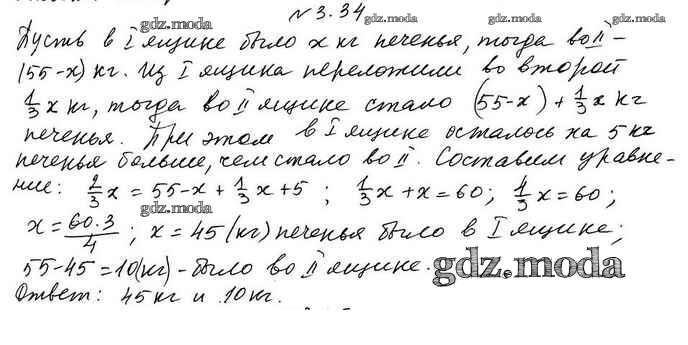 № 3.34
gdz.moda
Пусть в I ящике было x кг печенья, тогда во II –
gdz.moda
(55-x) кг. Из I ящика переложили во второй
gdz.moda
1/3 x кг, тогда во II ящике стало (55-x) + 1/3 x кг
gdz.moda gdz.moda
печенья. При этом в I ящике осталось на 5 кг
gdz.moda
печенья больше, чем стало во II. Составим уравне-
gdz.moda
ние: 2/3 x = 55-x + 1/3 x + 5 ; 1/3 x + x = 60; 4/3 x = 60 ;
gdz.moda gdz.moda
x = 60·3/4 ; x = 45 (кг) печенья было в I ящике;
gdz.moda
55-45 = 10(кг) – было во II ящике.
gdz.moda
Ответ: 45 кг и 10 кг.